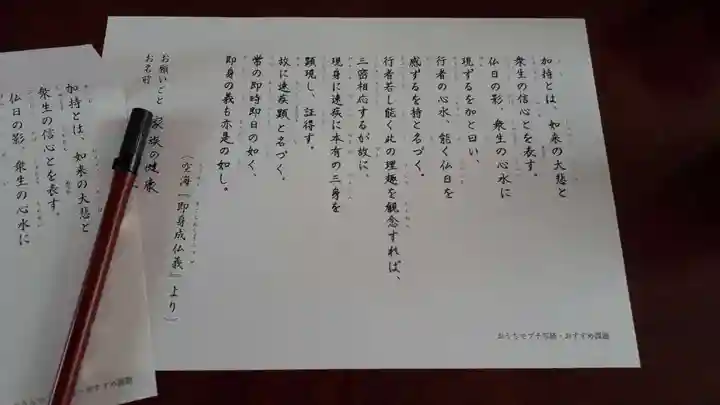 加持とは、如来の大悲と
衆生の信心とを表す。
仏日の影、衆生の心水に
現ずるを加と曰い、
行者の心水、能く仏日を
感ずるを持と名づく。
行者若し能く此の理趣を観念すれば、
三密相応するが故に、
現身に速疾に本有の三身を
顕現し、証得す。
故に速疾顕と名づく。
常の即時即日の如く、
即身の義も亦是の如し。
(空海『即身成仏義』より)
お願いごと 家族の健康
お名前
おうちでプチ写経・おすすめ課題
加持とは、如来の大悲と
衆生の信心とを表す。
仏日の影、衆生の心水に
おすすめ課題